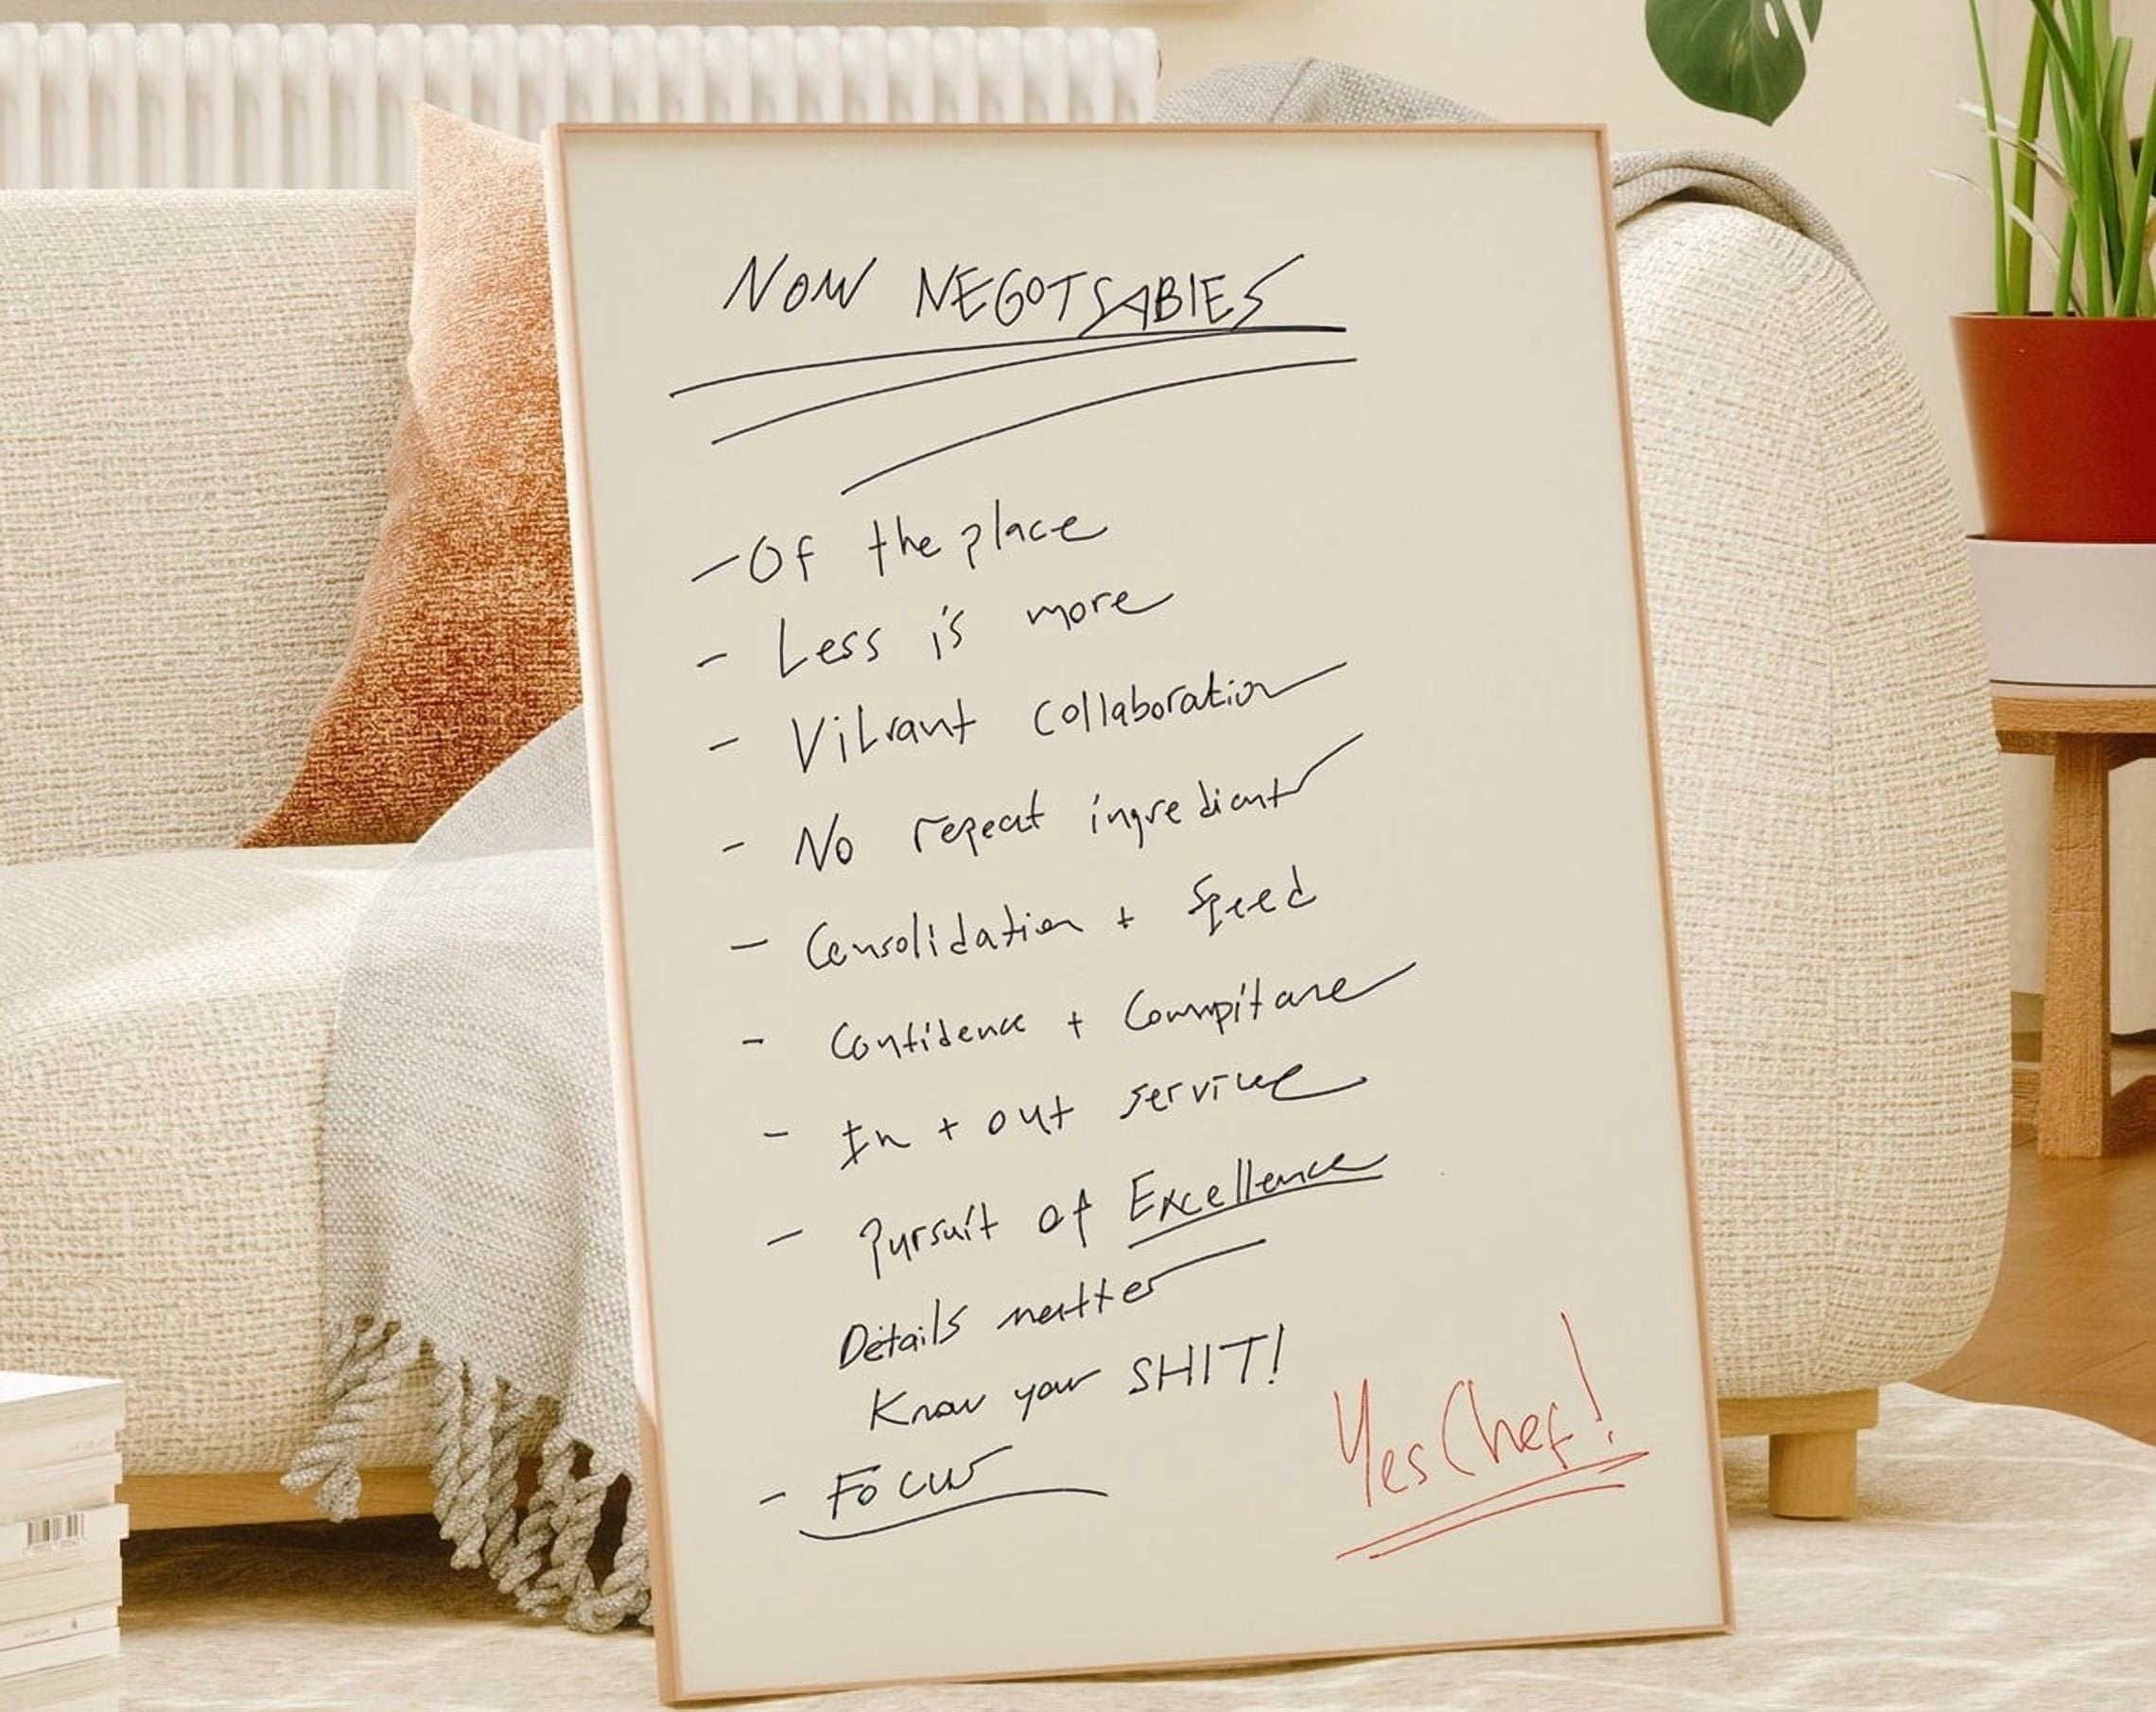 NOW NEGOTSABIES
- Of the place
- Less is more
- Vibrant collaboration
- No repeat ingredients
- Consolidation + Speed
- Confidence + Compitane
- In + out service
- Pursuit of Excellence
Details matter
Know your SHIT!
- Focus
Yes Chef!